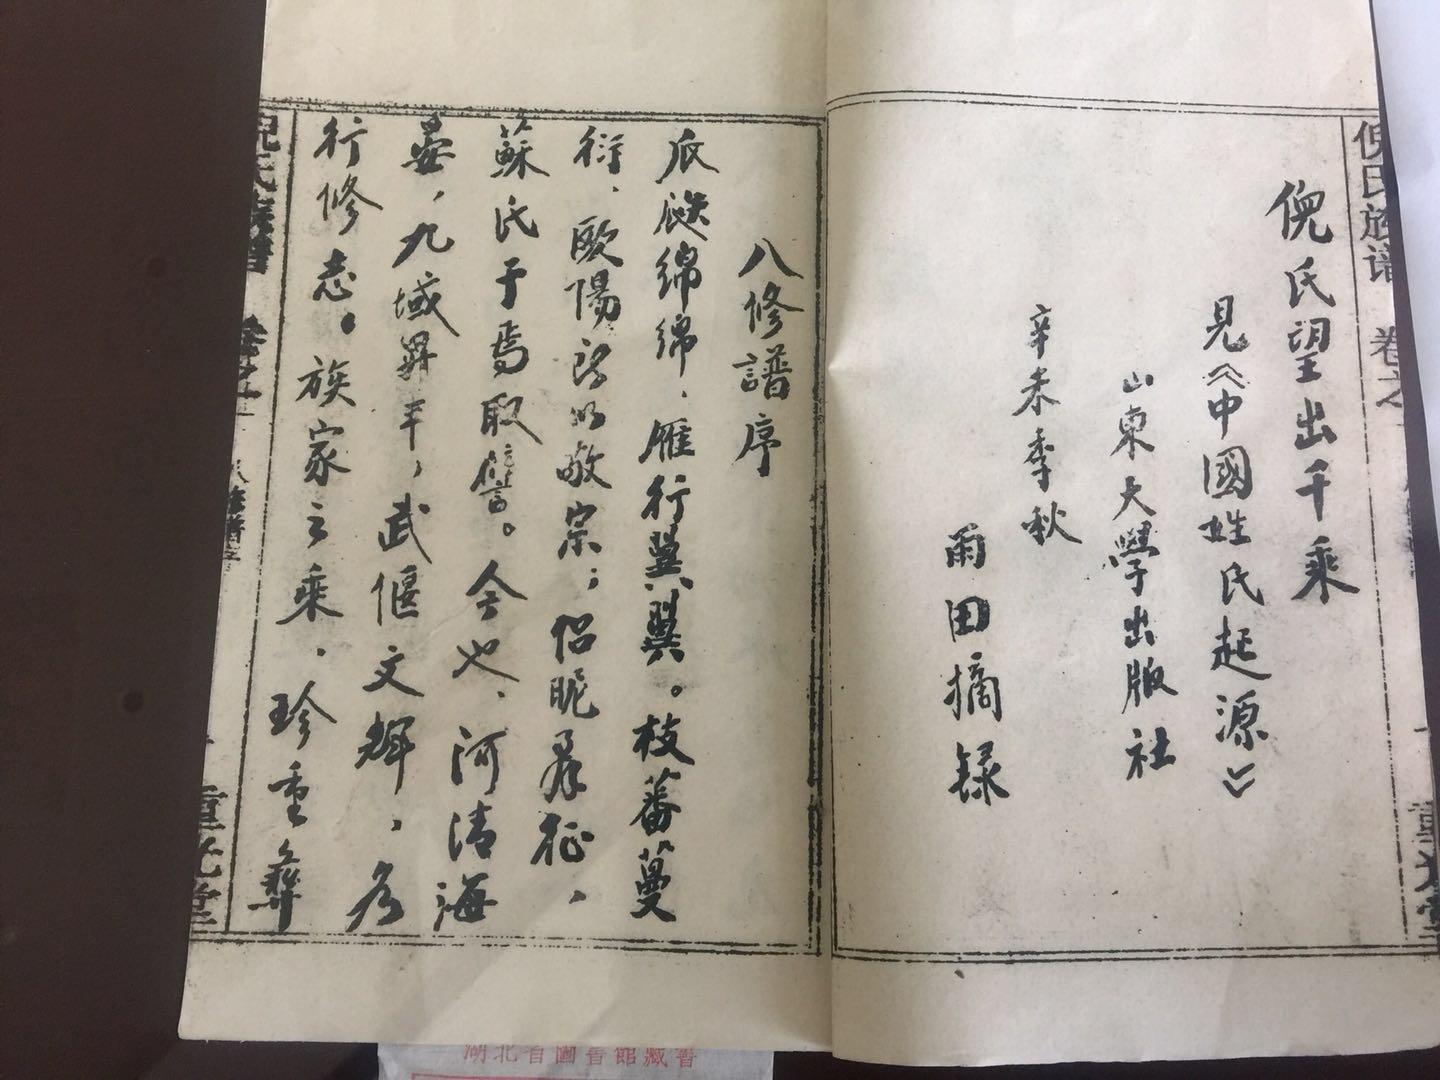 倪氏族谱 卷之
倪氏望出千乘
見《中國姓氏起源》
山東大學出版社
辛未季秋
雨田摘録
八修譜序
瓜瓞綿綿，雁行翼翼。枝蕃蔓
衍，歐陽以敬宗；侣昵征，
蘇氏于焉取讐。今也，河清海
晏，九域昇平，武偃文輝，
行修志。族家之乘，珍重彝
倪氏族譜 卷之 八修譜序 重光堂
湖北省圖書館藏書